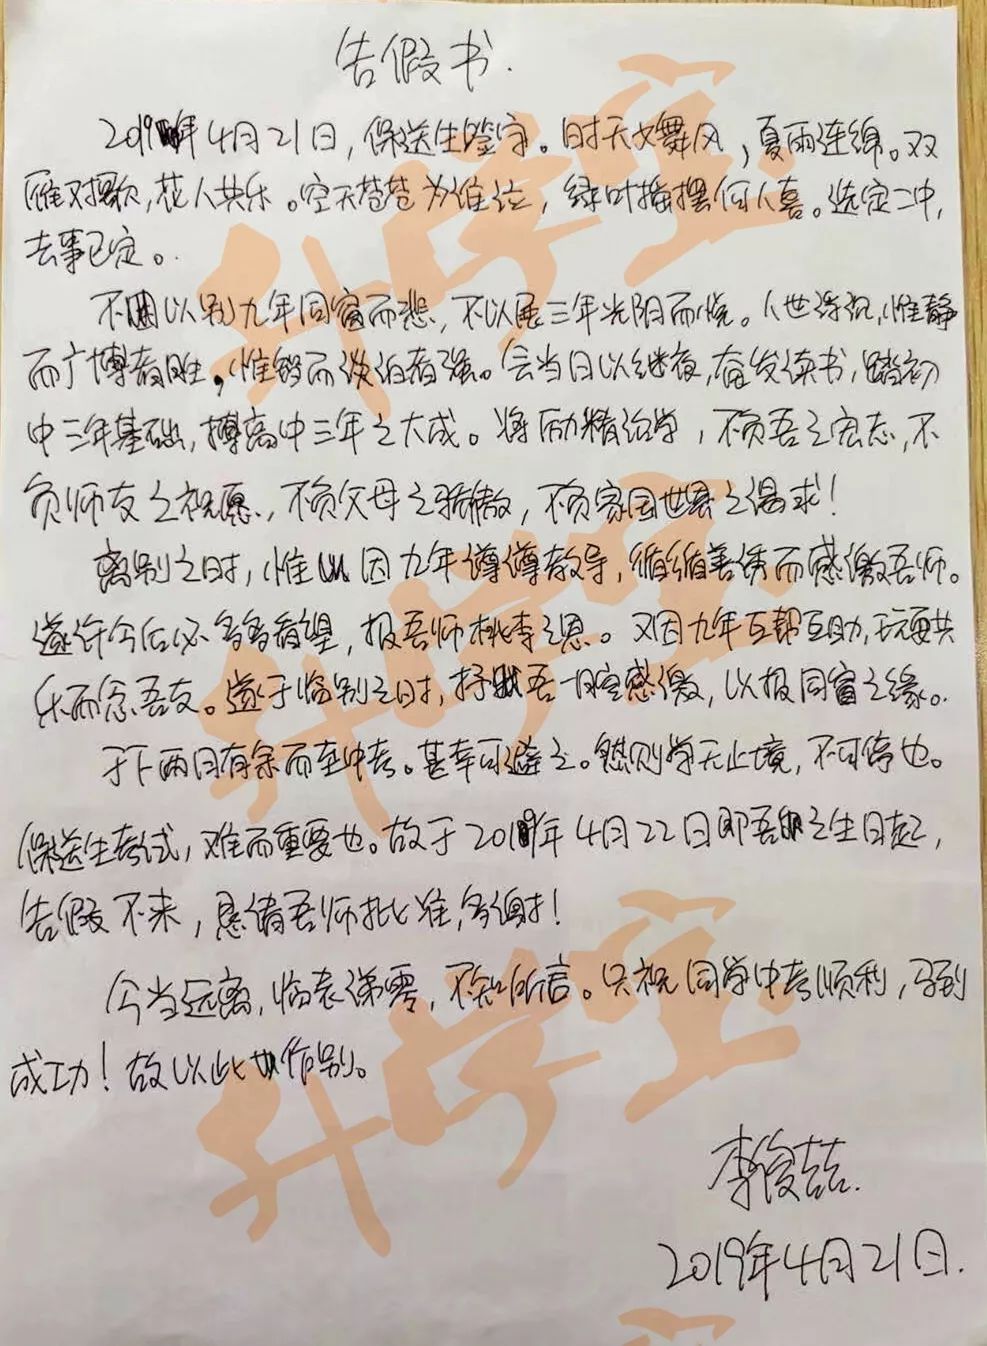 告假书.
2019年4月21日,保送生鉴字。时天文舞风,夏雨连绵。双
雁对歌,花人共乐。空天苍苍为谁泣,绿叶摇摆何人喜。选定二中,
去事已定。
不以别九年同窗而悲,不以展三年光阴而悦。人世浮沉,惟静
而广博者胜,惟智而淡泊者强。会当日以继夜,奋发读书,踏初
中三年基础,搏高中三年之大成。将励精治学,不负吾之宏志,不
负师友之祝愿,不负父母之骄傲,不负家国世界之渴求!
离别之时,惟因九年谆谆教导,循循善诱而感激吾师。
遂许今后必多多看望,报吾师桃李之恩。又因九年互帮互助,玩耍共
乐而念吾友。遂于临别之时,抒吾一腔感激,以报同窗之缘。
于下两月有余而至中考。甚幸可避之。然则学无止境,不可停也。
保送生考试,难而重要也。故于2019年4月22日即吾之生日起,
告假不来,恳请吾师批准,多谢!
今当远离,临表涕零,不知所言。只祝同学中考顺利,马到
成功!故以此作别。
李俊喆.
2019年4月21日.
升学宝
升学宝
升学宝